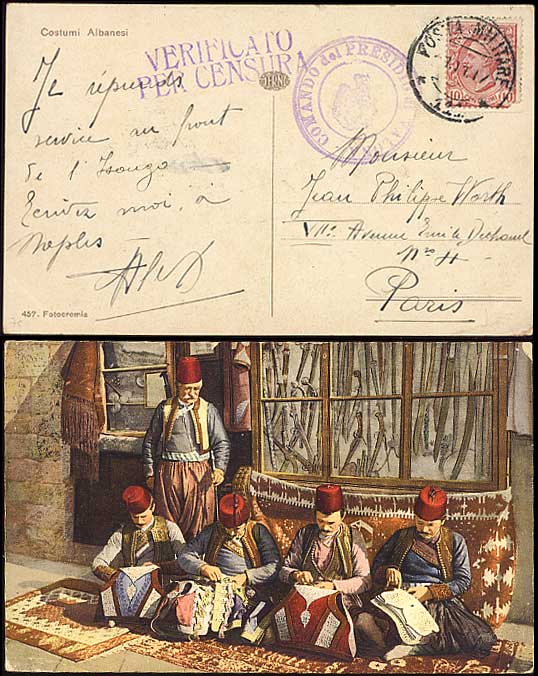 Costumi Albanesi
VERIFICATO
PER CENSURA
COMANDO del PRESIDIO
POSTA MILITARE
10
Je reprends
service au front
de l'Isonzo
Ecrivez moi, à
Naples
Alex
Monsieur
Jean Philippe Worth
VII. Avenue Emile
Paris
457. Fotocromia